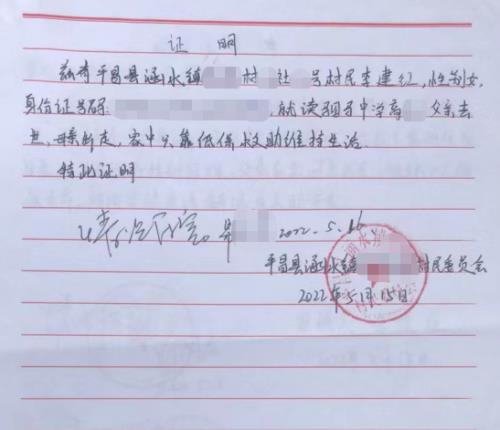 证 明
兹有平昌县涵水镇 村 社 号村民李建红,性别女,
身份证号码 ,就读 中学高 父亲去
世,母亲 走,家中只靠低保救助维持生活.
特此证明
情况属实。 2022.5.16
平昌县涵水镇 村民委员会
2022年5月15日